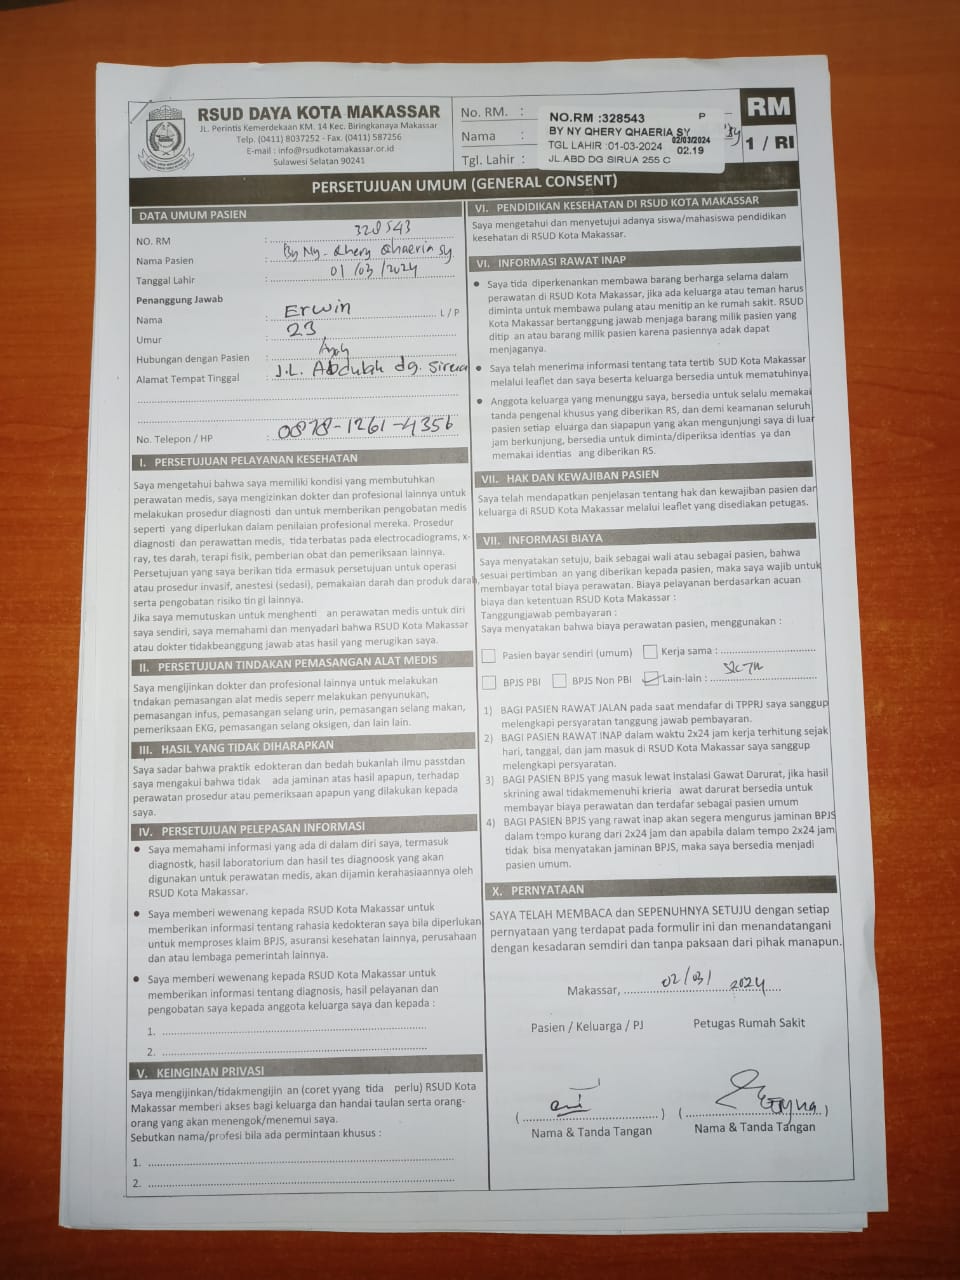 RSUD DAYA KOTA MAKASSAR
JL. Perintis Kemerdekaan KM. 14 Kec. Biringkanaya Makassar
Telp. (0411) 8037252 - Fax. (0411) 587256
E-mail : info@rsudkotamakassar.or.id
Sulawesi Selatan 90241
No. RM. :
Nama :
Tgl. Lahir :
NO.RM :328543 P
BY NY QHERY QHAERIA SY
TGL LAHIR :01-03-2024 02/03/2024
02.19
JL.ABD DG SIRUA 255 C
RM
1 / RI
PERSETUJUAN UMUM (GENERAL CONSENT)
DATA UMUM PASIEN
NO. RM : 328543
Nama Pasien : By Ny. Qhery Qhaeria Sy
Tanggal Lahir : 01/03/2024
Penanggung Jawab
Nama : Erwin L / P
Umur : 23
Hubungan dengan Pasien : Ayah
Alamat Tempat Tinggal : J.L. Abdulah dg. Sirua
No. Telepon / HP : 0878-1261-4356
I. PERSETUJUAN PELAYANAN KESEHATAN
Saya mengetahui bahwa saya memiliki kondisi yang membutuhkan
perawatan medis, saya mengizinkan dokter dan profesional lainnya untuk
melakukan prosedur diagnosti dan untuk memberikan pengobatan medis
seperti yang diperlukan dalam penilaian profesional mereka. Prosedur
diagnosti dan perawattan medis, tida terbatas pada electrocadiograms, x-
ray, tes darah, terapi fisik, pemberian obat dan pemeriksaan lainnya.
Persetujuan yang saya berikan tida ermasuk persetujuan untuk operasi
atau prosedur invasif, anestesi (sedasi), pemakaian darah dan produk darah,
serta pengobatan risiko tin gi lainnya.
Jika saya memutuskan untuk menghenti an perawatan medis untuk diri
saya sendiri, saya memahami dan menyadari bahwa RSUD Kota Makassar
atau dokter tidakbeanggung jawab atas hasil yang merugikan saya.
II. PERSETUJUAN TINDAKAN PEMASANGAN ALAT MEDIS
Saya mengijinkan dokter dan profesional lainnya untuk melakukan
tndakan pemasangan alat medis seperr melakukan penyunukan,
pemasangan infus, pemasangan selang urin, pemasangan selang makan,
pemeriksaan EKG, pemasangan selang oksigen, dan lain lain.
III. HASIL YANG TIDAK DIHARAPKAN
Saya sadar bahwa praktik edokteran dan bedah bukanlah ilmu passtdan
saya mengakui bahwa tidak ada jaminan atas hasil apapun, terhadap
perawatan prosedur atau pemeriksaan apapun yang dilakukan kepada
saya.
IV. PERSETUJUAN PELEPASAN INFORMASI
● Saya memahami informasi yang ada di dalam diri saya, termasuk
diagnostk, hasil laboratorium dan hasil tes diagnoosk yang akan
digunakan untuk perawatan medis, akan dijamin kerahasiaannya oleh
RSUD Kota Makassar.
● Saya memberi wewenang kepada RSUD Kota Makassar untuk
memberikan informasi tentang rahasia kedokteran saya bila diperlukan
untuk memproses klaim BPJS, asuransi kesehatan lainnya, perusahaan
dan atau lembaga pemerintah lainnya.
● Saya memberi wewenang kepada RSUD Kota Makassar untuk
memberikan informasi tentang diagnosis, hasil pelayanan dan
pengobatan saya kepada anggota keluarga saya dan kepada :
1.
2.
V. KEINGINAN PRIVASI
Saya mengijinkan/tidakmengijin an (coret yyang tida perlu) RSUD Kota
Makassar memberi akses bagi keluarga dan handai taulan serta orang-
orang yang akan menengok/menemui saya.
Sebutkan nama/profesi bila ada permintaan khusus :
1.
2.
VI. PENDIDIKAN KESEHATAN DI RSUD KOTA MAKASSAR
Saya mengetahui dan menyetujui adanya siswa/mahasiswa pendidikan
kesehatan di RSUD Kota Makassar.
VI. INFORMASI RAWAT INAP
● Saya tida diperkenankan membawa barang berharga selama dalam
perawatan di RSUD Kota Makassar, jika ada keluarga atau teman harus
diminta untuk membawa pulang atau menitip an ke rumah sakit. RSUD
Kota Makassar bertanggung jawab menjaga barang milik pasien yang
ditip an atau barang milik pasien karena pasiennya adak dapat
menjaganya.
● Saya telah menerima informasi tentang tata tertib SUD Kota Makassar
melalui leaflet dan saya beserta keluarga bersedia untuk mematuhinya.
● Anggota keluarga yang menunggu saya, bersedia untuk selalu memakai
tanda pengenal khusus yang diberikan RS, dan demi keamanan seluruh
pasien setiap eluarga dan siapapun yang akan mengunjungi saya di luar
jam berkunjung, bersedia untuk diminta/diperiksa identias ya dan
memakai identias ang diberikan RS.
VII. HAK DAN KEWAJIBAN PASIEN
Saya telah mendapatkan penjelasan tentang hak dan kewajiban pasien dan
keluarga di RSUD Kota Makassar melalui leaflet yang disediakan petugas.
VII. INFORMASI BIAYA
Saya menyatakan setuju, baik sebagai wali atau sebagai pasien, bahwa
sesuai pertimban an yang diberikan kepada pasien, maka saya wajib untuk
membayar total biaya perawatan. Biaya pelayanan berdasarkan acuan
biaya dan ketentuan RSUD Kota Makassar :
Tanggungjawab pembayaran :
Saya menyatakan bahwa biaya perawatan pasien, menggunakan :
Pasien bayar sendiri (umum) Kerja sama :
BPJS PBI BPJS Non PBI Lain-lain :
1) BAGI PASIEN RAWAT JALAN pada saat mendafar di TPPRJ saya sanggup
melengkapi persyaratan tanggung jawab pembayaran.
2) BAGI PASIEN RAWAT INAP dalam waktu 2x24 jam kerja terhitung sejak
hari, tanggal, dan jam masuk di RSUD Kota Makassar saya sanggup
melengkapi persyaratan.
3) BAGI PASIEN BPJS yang masuk lewat Instalasi Gawat Darurat, jika hasil
skrining awal tidakmemenuhi krieria awat darurat bersedia untuk
membayar biaya perawatan dan terdafar sebagai pasien umum
4) BAGI PASIEN BPJS yang rawat inap akan segera mengurus jaminan BPJS
dalam tempo kurang dari 2x24 jam dan apabila dalam tempo 2x24 jam
tidak bisa menyatakan jaminan BPJS, maka saya bersedia menjadi
pasien umum.
X. PERNYATAAN
SAYA TELAH MEMBACA dan SEPENUHNYA SETUJU dengan setiap
pernyataan yang terdapat pada formulir ini dan menandatangani
dengan kesadaran semdiri dan tanpa paksaan dari pihak manapun.
Makassar, 02/03/ 2024
Pasien / Keluarga / PJ Petugas Rumah Sakit
( ) ( )
Nama & Tanda Tangan Nama & Tanda Tangan